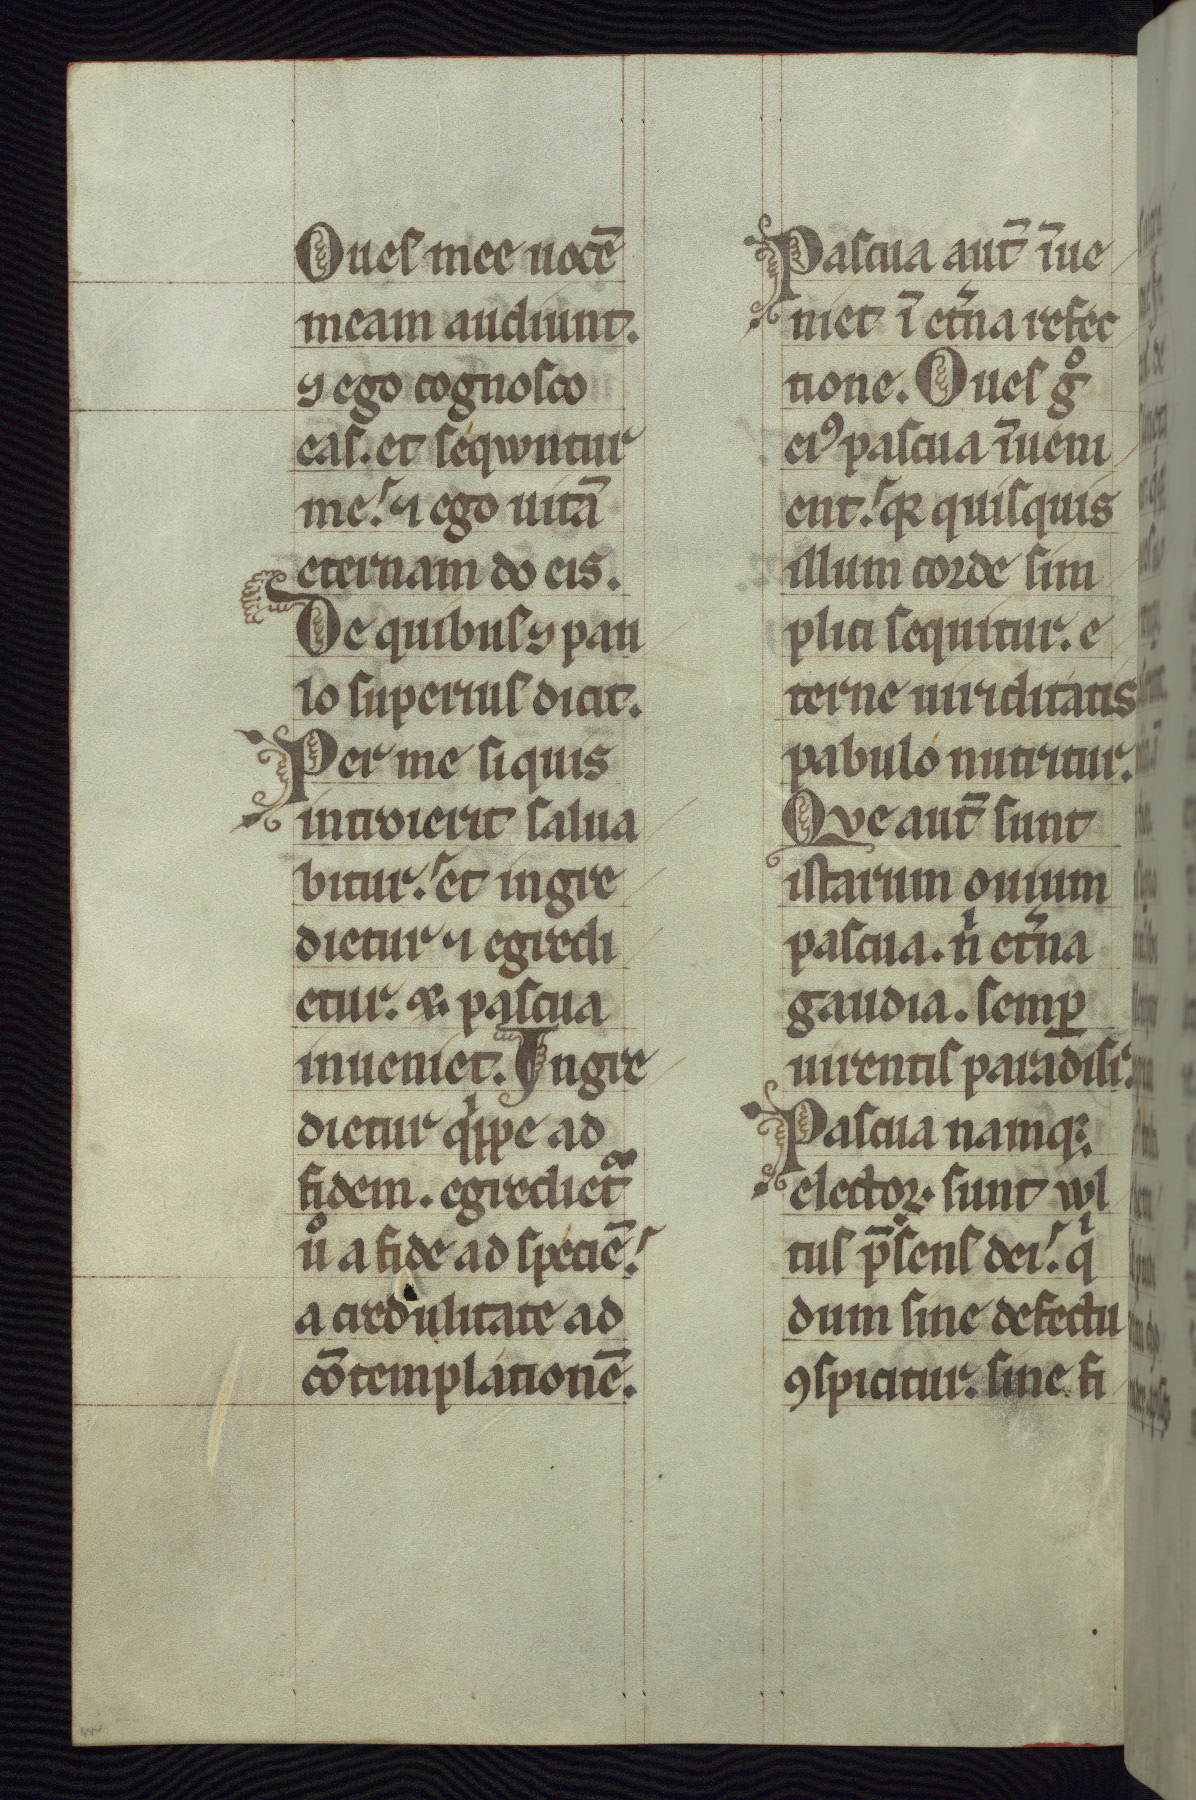 Oues mee uocē
meam audiunt.
⁊ ego cognosco
eas. et seqwntur
me. ⁊ ego uitā
eternam do eis.
De quibus ⁊ pau
lo superius dicit.
Per me si quis
introierit salua
bitur. et ingre
dietur ⁊ egredi
etur. ⁊ pascua
inueniet. Ingre
dietur qͥppe ad
fidem. egrediet᷑
uͦ a fide ad speciē.
a credulitate ad
cōtemplationē.
Pascua aut̄ īue
niet ī et̄na refec
tione. Oues gͦ
eiꝰ pascua īueni
ent. qꝛ quisquis
illum corde sim
plici sequitur. e
terne uiriditatis
pabulo nutritur.
Qve aut̄ sunt
istarum ouium
pascua. nͥ et̄na
gaudia. semꝑ
uirentis paradisi.
Pascua namqꝫ
electoꝝ sunt wl
tus p̄sens dei. qͥ
dum sine defectu
ꝯspicitur. sine fi